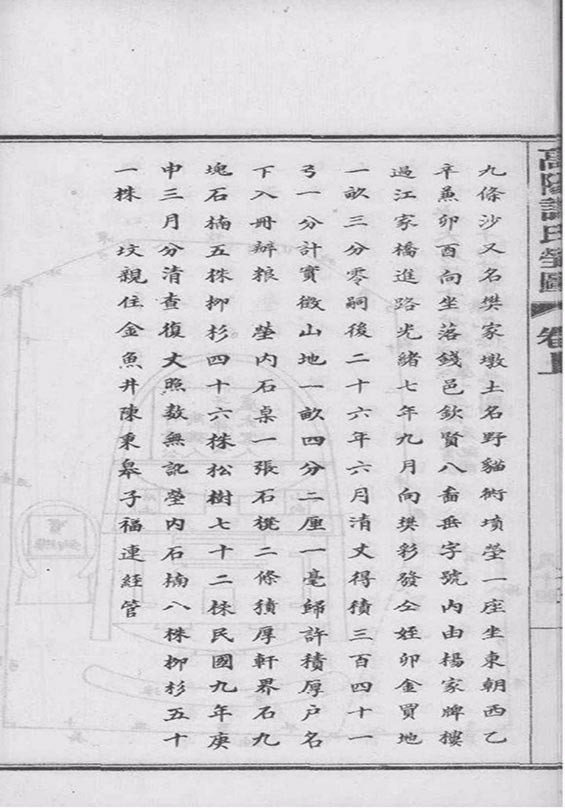 高陽許氏塋圖 卷上
九條沙又名樊家墩土名野貓術墳塋一座坐東朝西乙
辛兼卯酉向坐落錢邑欽賢八啚垂字號內由楊家牌樓
過江家橋進路光緒七年九月向樊彩發仝姪卯金買地
一畝三分零嗣後二十六年六月清丈得積三百四十一
弓一分計實徵山地一畝四分二厘一毫歸許積厚戶名
下入冊辦粮 塋內石桌一張石櫈二條積厚軒界石九
塊石楠五株柳杉四十六株松樹七十二株民國九年庚
申三月分清查復丈照数無訛塋內石楠八株柳杉五十
一株 坟親住金魚井陳東皋子福連經管